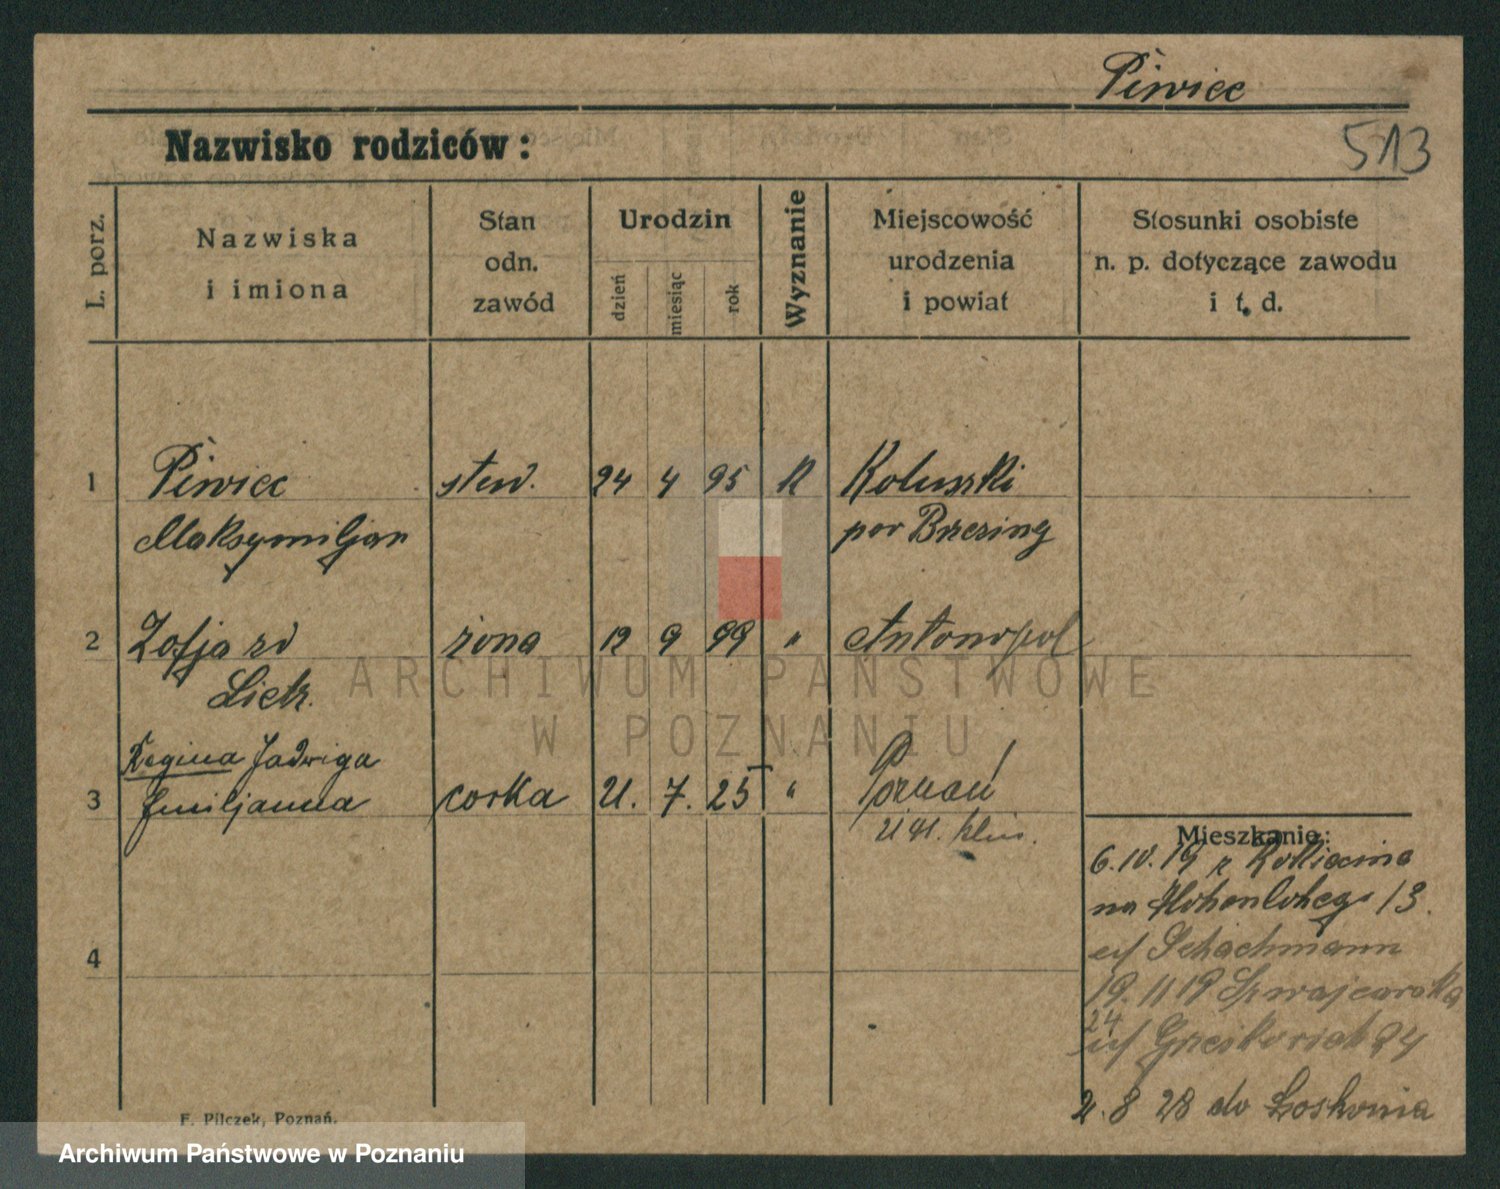 Piwiec
Nazwisko rodziców:
513
L. porz.
Nazwiska
i imiona
Stan
odn.
zawód
Urodzin
dzień
miesiąc
rok
Wyznanie
Miejscowość
urodzenia
i powiat
Stosunki osobiste
n. p. dotyczące zawodu
i t. d.
1 Piwiec stud. 24 4 95 K Koluszki
Maksymiljan pow Brzeziny
2 Zofja zd żona 12 9 99 " Antonopol
Lietz.
Regina Jadwiga
3 Emiljanna corka 21. 7. 25 " Poznań
Mieszkanie:
6.10.19 z Rokiecina
na Hohenloheg 13.
u/ Schachmann
19. 11 19 Szwajcarska
24
u/ 24
2. 8 28 do
4
F. Pilczek, Poznań.
ARCHIWUM PAŃSTWOWE
W POZNANIU
Archiwum Państwowe w Poznaniu